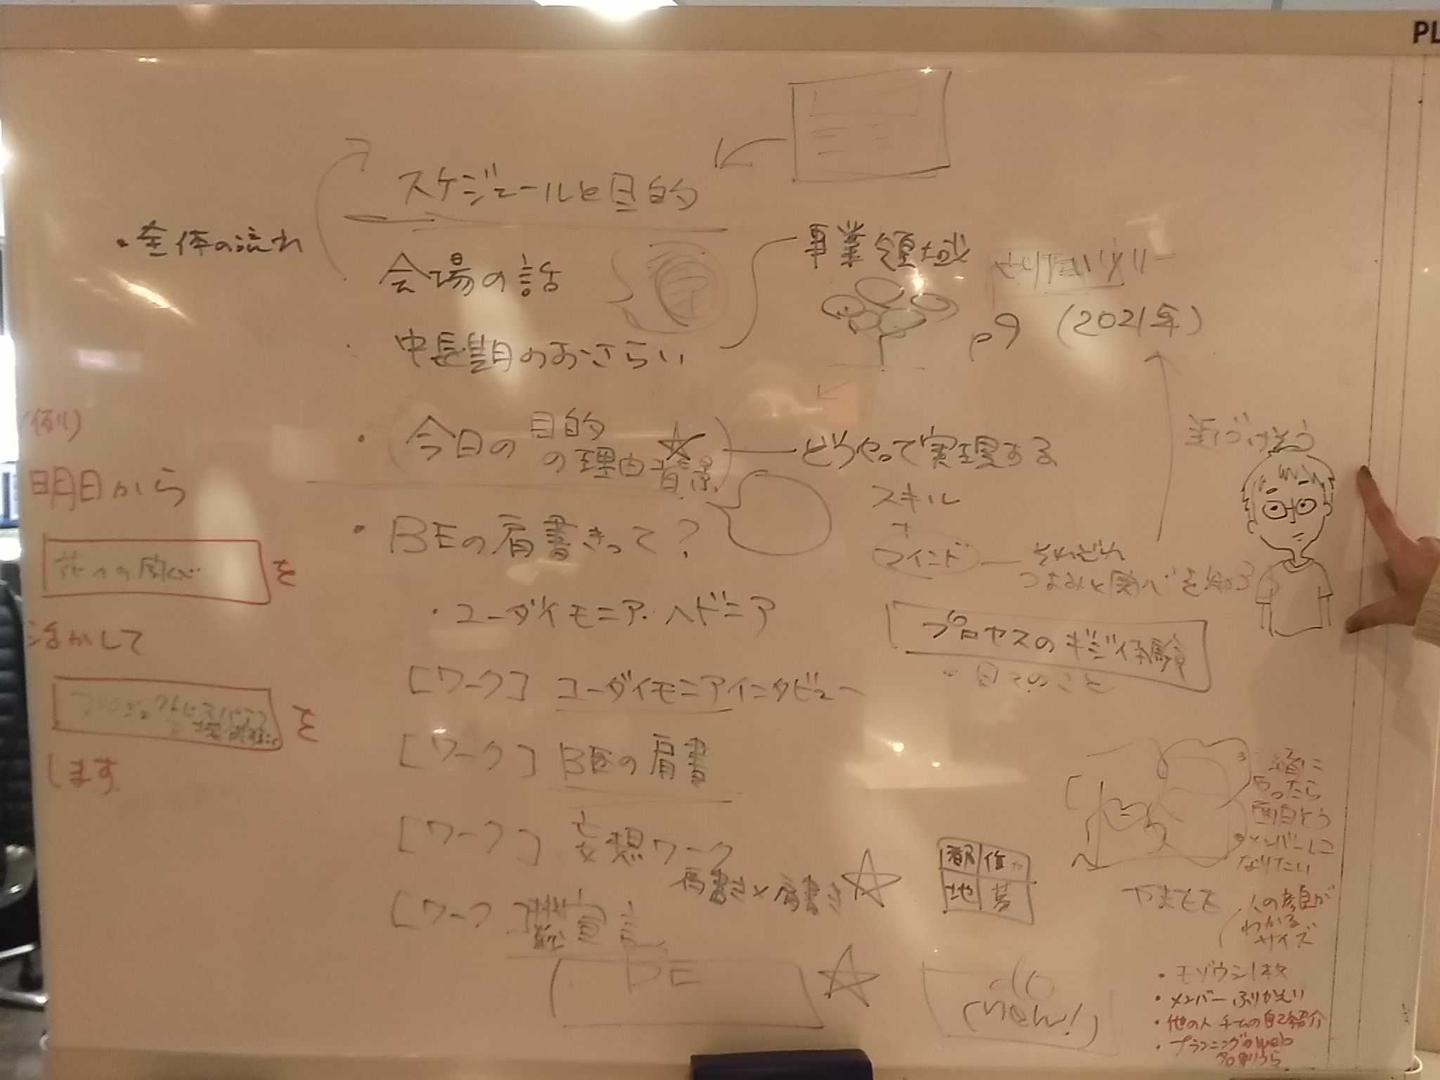 PL
スケジュールと目的
・全体の流れ
会場の話
事業領域
中長期のおさらい
p9 (2021年)
・今日の 目的
の理由 背景
どうやって実現する
スキル
+
マインド
それぞれ
・BEの肩書きって?
・ユーダイモニア・ヘドニア
プロセスのギジ体験
・日々のこと
[ワーク] ユーダイモニアインタビュー
[ワーク] BEの肩書
[ワーク] 妄想ワーク
肩書き×肩書き
[ワーク] 宣言
BE
do
(new!)
(例)
明日から
を
活かして
を
します
一緒に
やったら
面白そう
メンバーに
なりたい
人の顔が
わかる
サイズ
・モゾウシ1枚
・メンバーふりかえり
・他の人 チームの自己紹介
・プランニングのweb